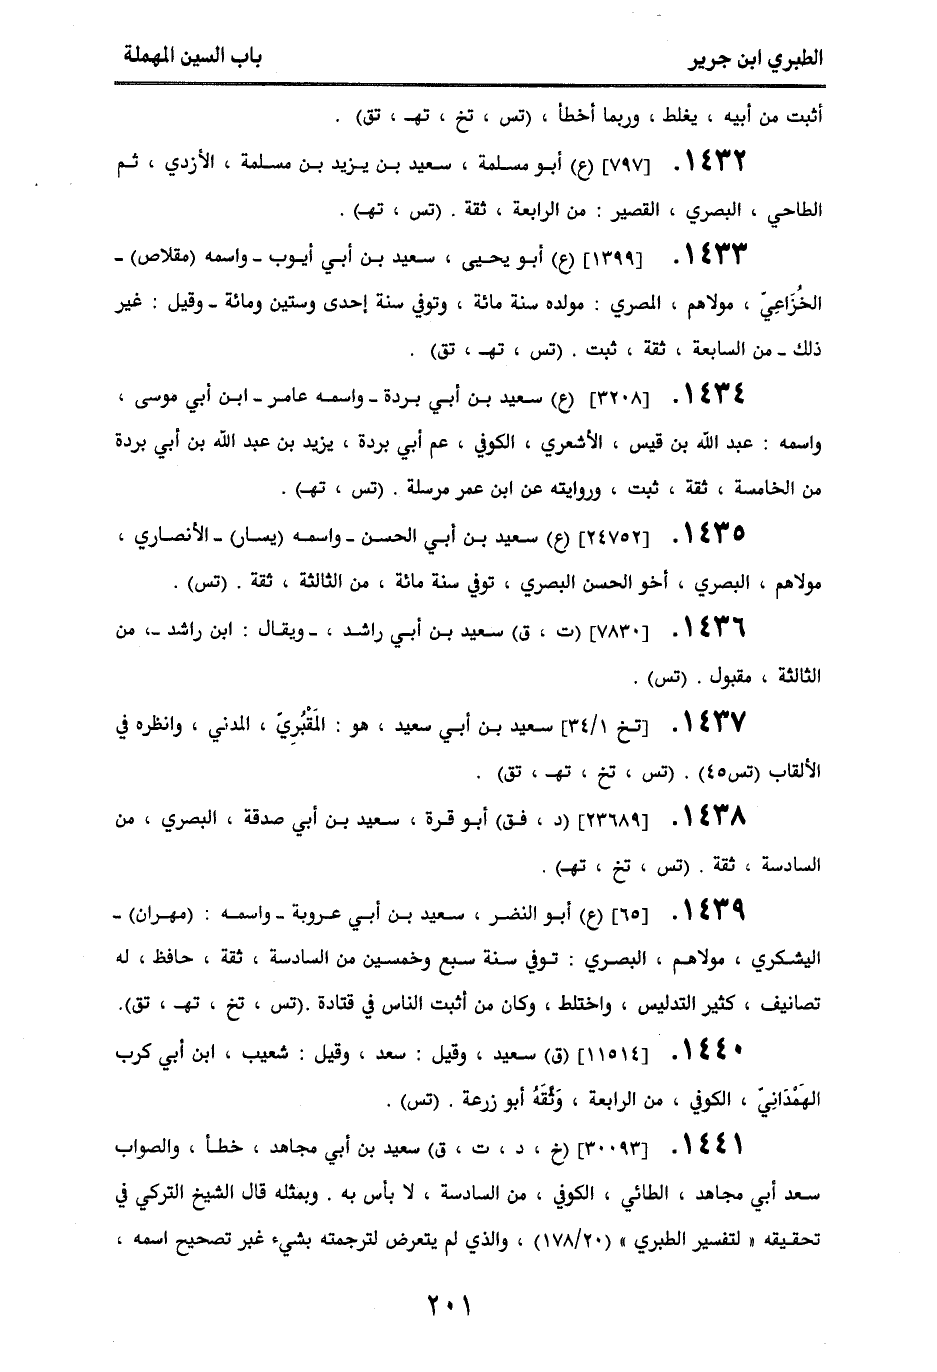 الطبري ابن جرير
باب السين المهملة
أثبت من أبيه ، يغلط ، وربما أخطأ ، (تس ، تخ ، تهـ ، تق) .
١٤٣٢. [٧٩٧] (ع) أبو مسلمة ، سعيد بن يزيد بن مسلمة ، الأزدي ، ثم
الطاحي ، البصري ، القصير : من الرابعة ، ثقة . (تس ، تهـ) .
١٤٣٣. [١٣٩٩] (ع) أبو يحيى ، سعيد بن أبي أيوب ـ واسمه (مقلاص) ـ
الخُزَاعِيّ ، مولاهم ، المصري : مولده سنة مائة ، وتوفي سنة إحدى وستين ومائة ـ وقيل : غير
ذلك ـ من السابعة ، ثقة ، ثبت . (تس ، تهـ ، تق) .
١٤٣٤. [٣٢٠٨] (ع) سعيد بن أبي بردة ـ واسمه عامر ـ ابن أبي موسى ،
واسمه : عبد الله بن قيس ، الأشعري ، الكوفي ، عم أبي بردة ، يزيد بن عبد الله بن أبي بردة
من الخامسة ، ثقة ، ثبت ، وروايته عن ابن عمر مرسلة . (تس ، تهـ) .
١٤٣٥. [٢٤٧٥٢] (ع) سعيد بن أبي الحسن ـ واسمه (يسار) ـ الأنصاري ،
مولاهم ، البصري ، أخو الحسن البصري ، توفي سنة مائة ، من الثالثة ، ثقة . (تس) .
١٤٣٦. [٧٨٣٠] (ت ، ق) سعيد بن أبي راشد ، ـ ويقال : ابن راشد ـ، من
الثالثة ، مقبول . (تس) .
١٤٣٧. [تخ ٣٤/١] سعيد بن أبي سعيد ، هو : المَقْبُرِيّ ، المدني ، وانظره في
الألقاب (تس٤٥) . (تس ، تخ ، تهـ ، تق) .
١٤٣٨. [٢٣٦٨٩] (د ، فق) أبو قرة ، سعيد بن أبي صدقة ، البصري ، من
السادسة ، ثقة . (تس ، تخ ، تهـ) .
١٤٣٩. [٦٥] (ع) أبو النضر ، سعيد بن أبي عروبة ـ واسمه : (مهران) ـ
اليشكري ، مولاهم ، البصري : توفي سنة سبع وخمسين من السادسة ، ثقة ، حافظ ، له
تصانيف ، كثير التدليس ، واختلط ، وكان من أثبت الناس في قتادة .(تس ، تخ ، تهـ ، تق).
١٤٤٠. [١١٥١٤] (ق) سعيد ، وقيل : سعد ، وقيل : شعيب ، ابن أبي كرب
الهَمْدَانِيّ ، الكوفي ، من الرابعة ، وَثَّقَهُ أبو زرعة . (تس) .
١٤٤١. [٣٠٠٩٣] (خ ، د ، ت ، ق) سعيد بن أبي مجاهد ، خطأ ، والصواب
سعد أبي مجاهد ، الطائي ، الكوفي ، من السادسة ، لا بأس به . وبمثله قال الشيخ التركي في
تحقيقه « لتفسير الطبري » (١٧٨/٢٠) ، والذي لم يتعرض لترجمته بشيء غبر تصحيح اسمه ،
٢٠١